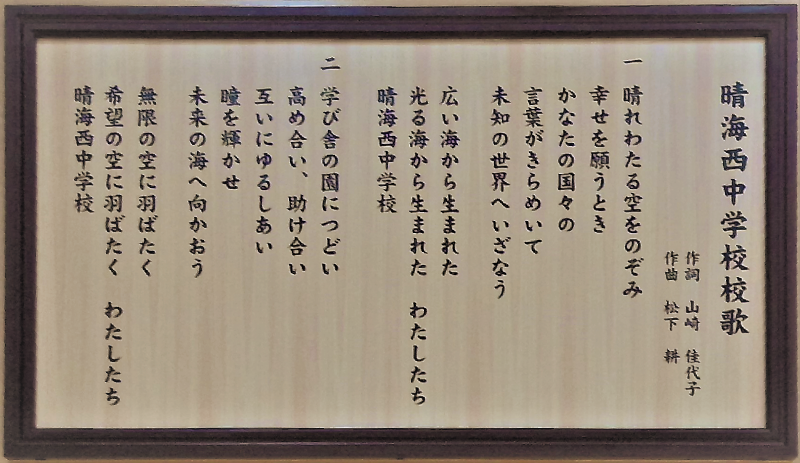 晴海西中学校校歌
作詞 山崎 佳代子
作曲 松下 耕
一 晴れわたる空をのぞみ
幸せを願うとき
かなたの国々の
言葉がきらめいて
未知の世界へいざなう
広い海から生まれた
光る海から生まれた わたしたち
晴海西中学校
二 学び舎の園につどい
高め合い、助け合い
互いにゆるしあい
瞳を輝かせ
未来の海へ向かおう
無限の空に羽ばたく
希望の空に羽ばたく わたしたち
晴海西中学校